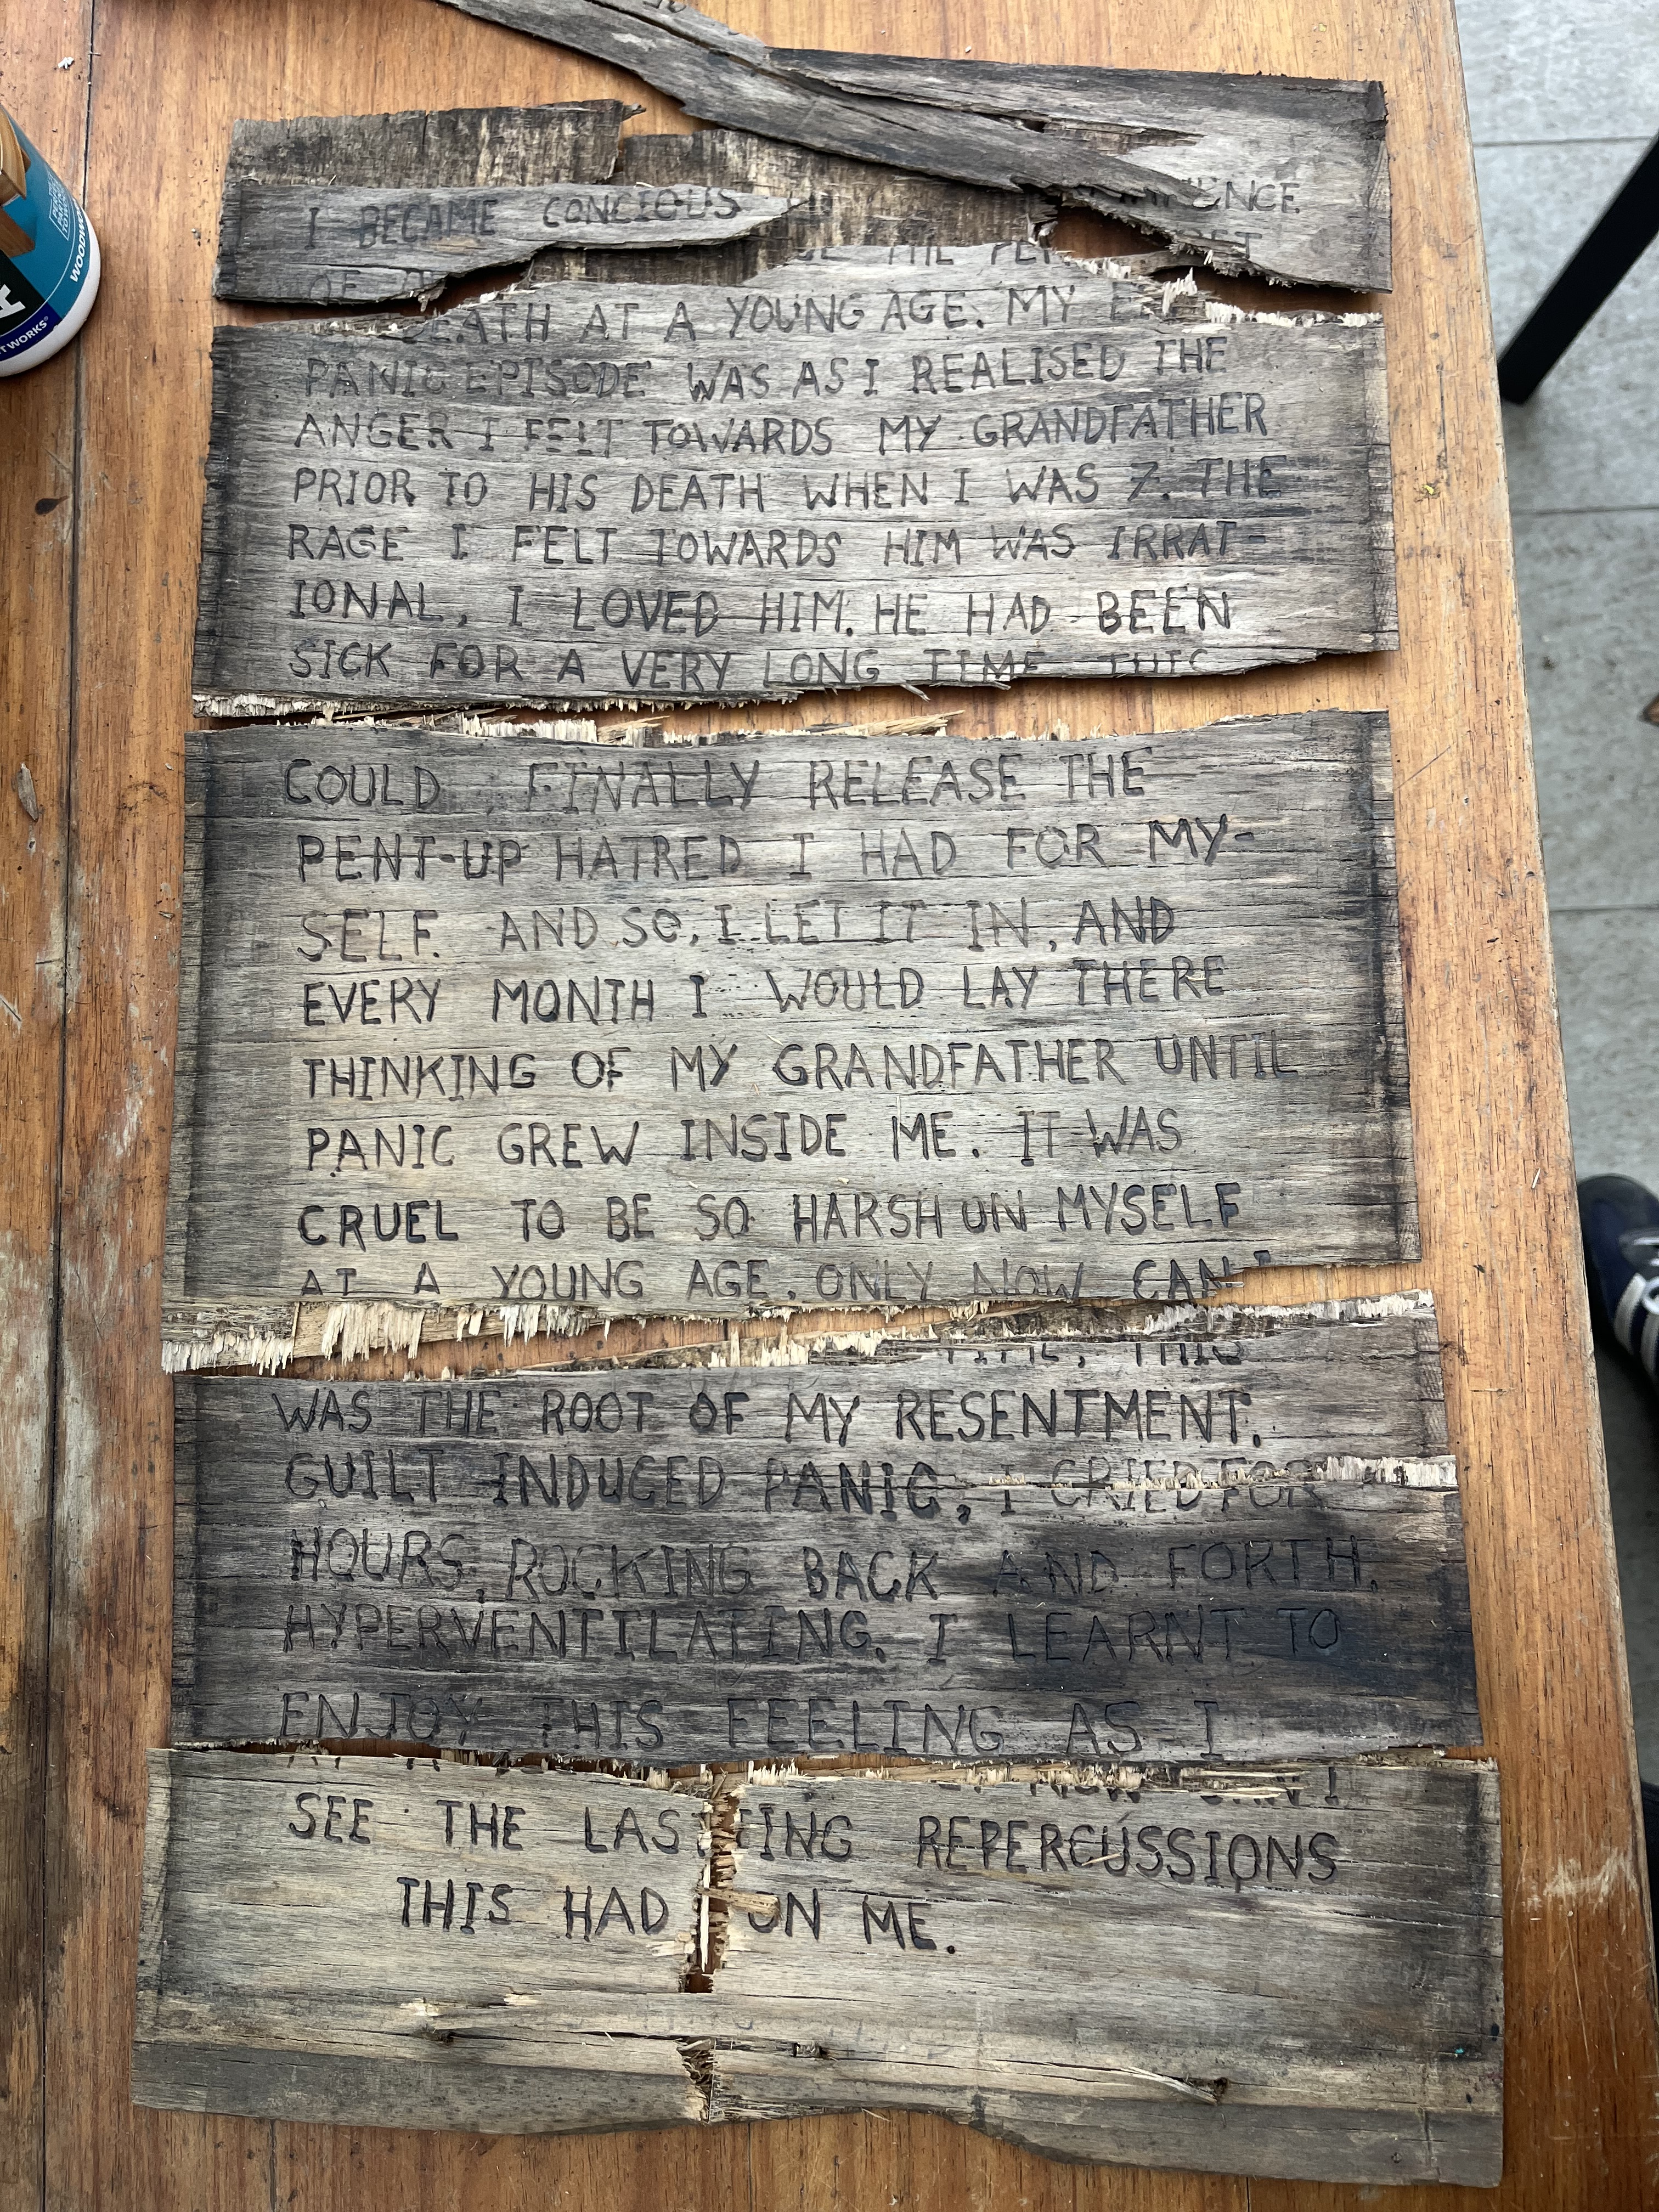 I BECAME CONCIOUS
OF
AT A YOUNG AGE. MY
PANIC EPISODE WAS AS I REALISED THE
ANGER I FELT TOWARDS MY GRANDFATHER
PRIOR TO HIS DEATH WHEN I WAS 7. THE
RAGE I FELT TOWARDS HIM WAS IRRAT-
IONAL, I LOVED HIM. HE HAD BEEN
SICK FOR A VERY LONG TIME THIS
COULD FINALLY RELEASE THE
PENT-UP HATRED I HAD FOR MY-
SELF. AND SO, I LET IT IN, AND
EVERY MONTH I WOULD LAY THERE
THINKING OF MY GRANDFATHER UNTIL
PANIC GREW INSIDE ME. IT WAS
CRUEL TO BE SO HARSH ON MYSELF
AT A YOUNG AGE. ONLY NOW CAN I
WAS THE ROOT OF MY RESENTMENT.
GUILT INDUCED PANIC, I CRIED FOR
HOURS, ROCKING BACK AND FORTH,
HYPERVENTILATING. I LEARNT TO
ENJOY THIS FEELING AS I
SEE THE LASTING REPERCUSSIONS
THIS HAD ON ME.